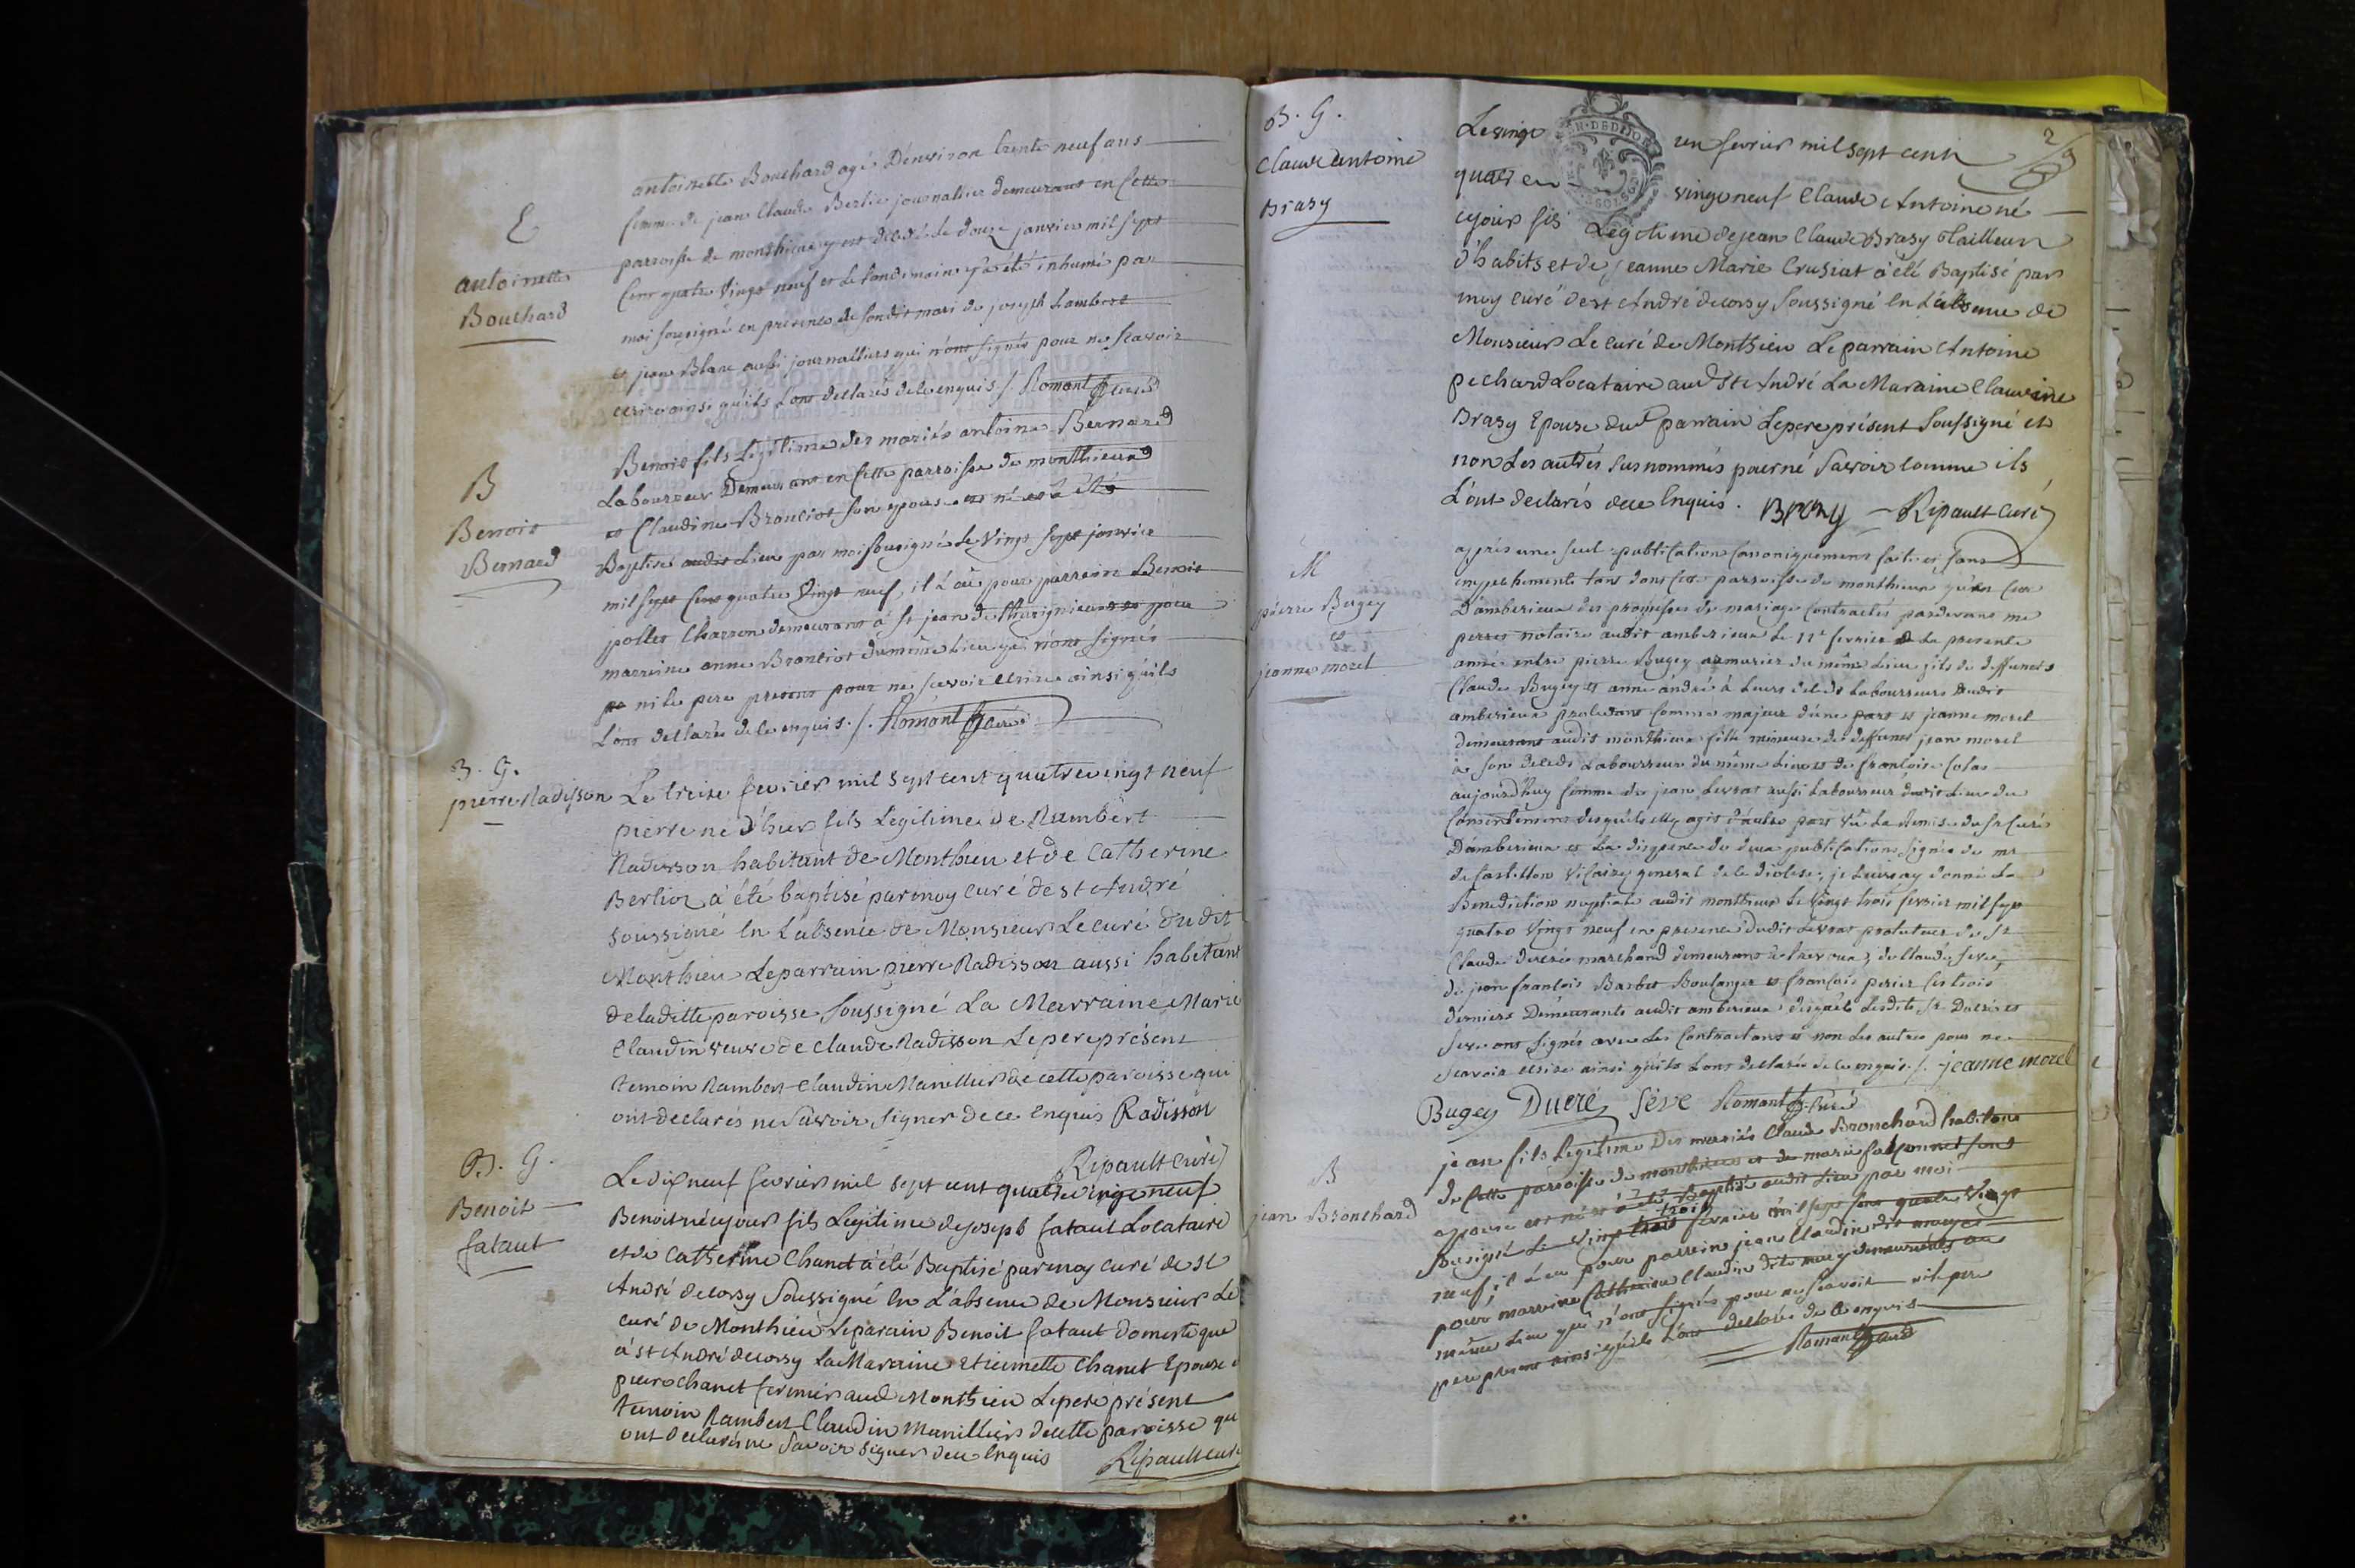 E
antoinette
Bouchard
antoinette Bouchard agé D'environ trente neuf ans
femme de jean Claude Berlie journallier demeurant en cette
parroisse de monthieux y est décédé le douze janvier mil sept
cent quatre vingt neuf et le landemain y a été inhumé par
moi sousigné en présence de son dit mari de joseph Lambert
et jean Blanc aussi journalliers qui n'ont signés pour ne scavoir
ecrire ainsi qu'ils l'ont déclarés de ce enquis ./. Romant curé
B
Benoit
Bernard
Benoit fils Légitime des mariés antoine Bernard
Laboureur Demeurant en cette parroisse de monthieux
et Claudine Bronciot son epouse est né et a été
Baptisé audit Lieu par moi sousigné le Vingt sept janvier
mil sept cent quatre Vingt neuf, il a eu pour parrain Benoit
pollet Charron demeurant à st jean de thurignieux et pour
marraine anne Bronciot du même Lieu qui n'ont signés
ni le pere present pour ne scavoir ecrire ainsi qu'ils
l'ont déclarés de ce enquis ./. Romant curé
B. G.
pierre Radisson
Le treize fevrier mil sept cent quatrevingt neuf
pierre né d'hier fils Légitime de Rambert
Radisson habitant de Monthieu et de Catherine
Berlior à été baptisé par moy curé de st André
soussigné En L'absence de Monsieur Le curé dudit
Monthieu Le parrain pierre Radisson aussi habitant
de la ditte paroisse soussigné La Marraine Marie
Claudin veuve de Claude Radisson Le pere présent
temoin Rambert Claudin Manillier de cette paroisse qui
ont declarés ne Savoir signer de ce Enquis Radisson
Ripault curé
B. G.
Benoit
fataut
Le dix neuf fevrier mil sept cent quatre vingt neuf
Benoit né ce jour fils Legitime de joseph fataut Locataire
et de Catherine Chanet à été Baptisé par moy curé de st
André de corsy Soussigné En L'absence de Monsieur Le
curé de Monthieu Le parain Benoit fataut domestique
à st André de corsy La Maraine Etiennette Chanet Epouse
pierre Chanet fermier aud Monthieu Le pere présent
temoin Rambert Claudin Manillier de cette paroisse qui
ont declarés ne Savoir signer de ce Enquis
Ripault curé
B. G.
Claude antoine
Brasy
2
Le vingt un fevrier mil sept cent
quatre vingt neuf Claude Antoine né
ce jour fils Légitime de jean Claude Brasy Tailleur
d'habits et de jeanne Marie Crusiat à été Baptisé par
moy curé de st André de corsy Soussigné En L'absence de
Monsieur Le curé de Monthieu Le parrain Antoine
pechard Locataire aud St André La Maraine Claudine
Brasy Epouse dud parrain Le pere présent Soussigné et
non Les autres susnommés pour né Savoir comme ils
L'ont declarés de ce Enquis. Brasy Ripault curé
M
pierre Bugey
et
jeanne morel
après une seul publication Canoniquement faite et sans
empechements tant dans cette parroisse de monthieux qu'en celle
D'amberieux des promesses de mariage Contractés pardevant me
perret notaire audit amberieux le 11e fevrier de la presente
année entre pierre Bugey armurier du même Lieu fils de deffuncts
Claude Bugey et anne andré à leurs décès Laboureurs audit
amberieux procedant comme majeur d'une part et jeanne morel
demeurant audit monthieux fille mineure de deffunct jean morel
à son décés Laboureur du même Lieu et de françoise Colas
aujourd'huy femme de jean Levrat aussi Laboureur dudit Lieu du
Consentement desquels elle agit d'autre part vû la remise du sr curé
D'amberieux et la dispense de deux publications signée de mr
de Castillon Vicaire general de ce diocese, je leurs ay donné la
Benediction nuptiale audit monthieux le Vingt trois fevrier mil sept
quatre Vingt neuf en presence dudit Levrat protuteur du sr
Claude ducré marchand demeurant à trevoux, de Claude seve,
de jean françois Barbet Boulanger et françois perier ces trois
derniers Demeurants audit amberieux desquels lesdits sr Ducré et
Seve ont signés avec les Contractans et non les autres pour ne
Scavoir ecrire ainsi qu'ils l'ont déclarés de ce enquis ./. jeanne morel
Bugey Ducré Séve Romant curé
B
jean Bronchard
jean fils Légitime Des mariés Claude Bronchard habitant
de cette parroisse de monthieux et de marie falconnet sont
epouse est né et a été Baptisé audit Lieu par moi
Sousigné le Vingt trois fevrier mil sept cent quatre Vingt
neuf, il a eu pour parrein jean Claudin dit
pour marraine Catherine Claudin dite demeurants au
même Lieu qui n'ont signés pour ne scavoir ni le pere
present ainsi qu'ils l'ont déclarés de ce enquis
Romant curé